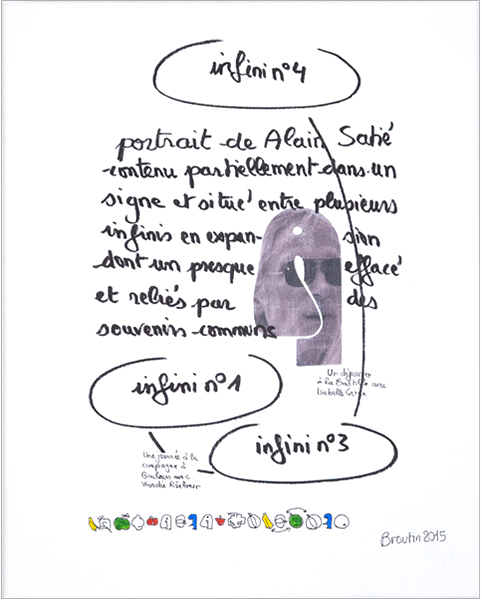 infini n°4
portrait de Alain Satié
contenu partiellement dans un
signe et situé entre plusieurs
infinis en expan- sion
dont un presque effacé
et reliés par des
souvenirs communs
Un déjeuner
à la Bastille avec
Isabelle
infini n°1
infini n°3
Une journée à la
campagne à
avec
Broutin 2015